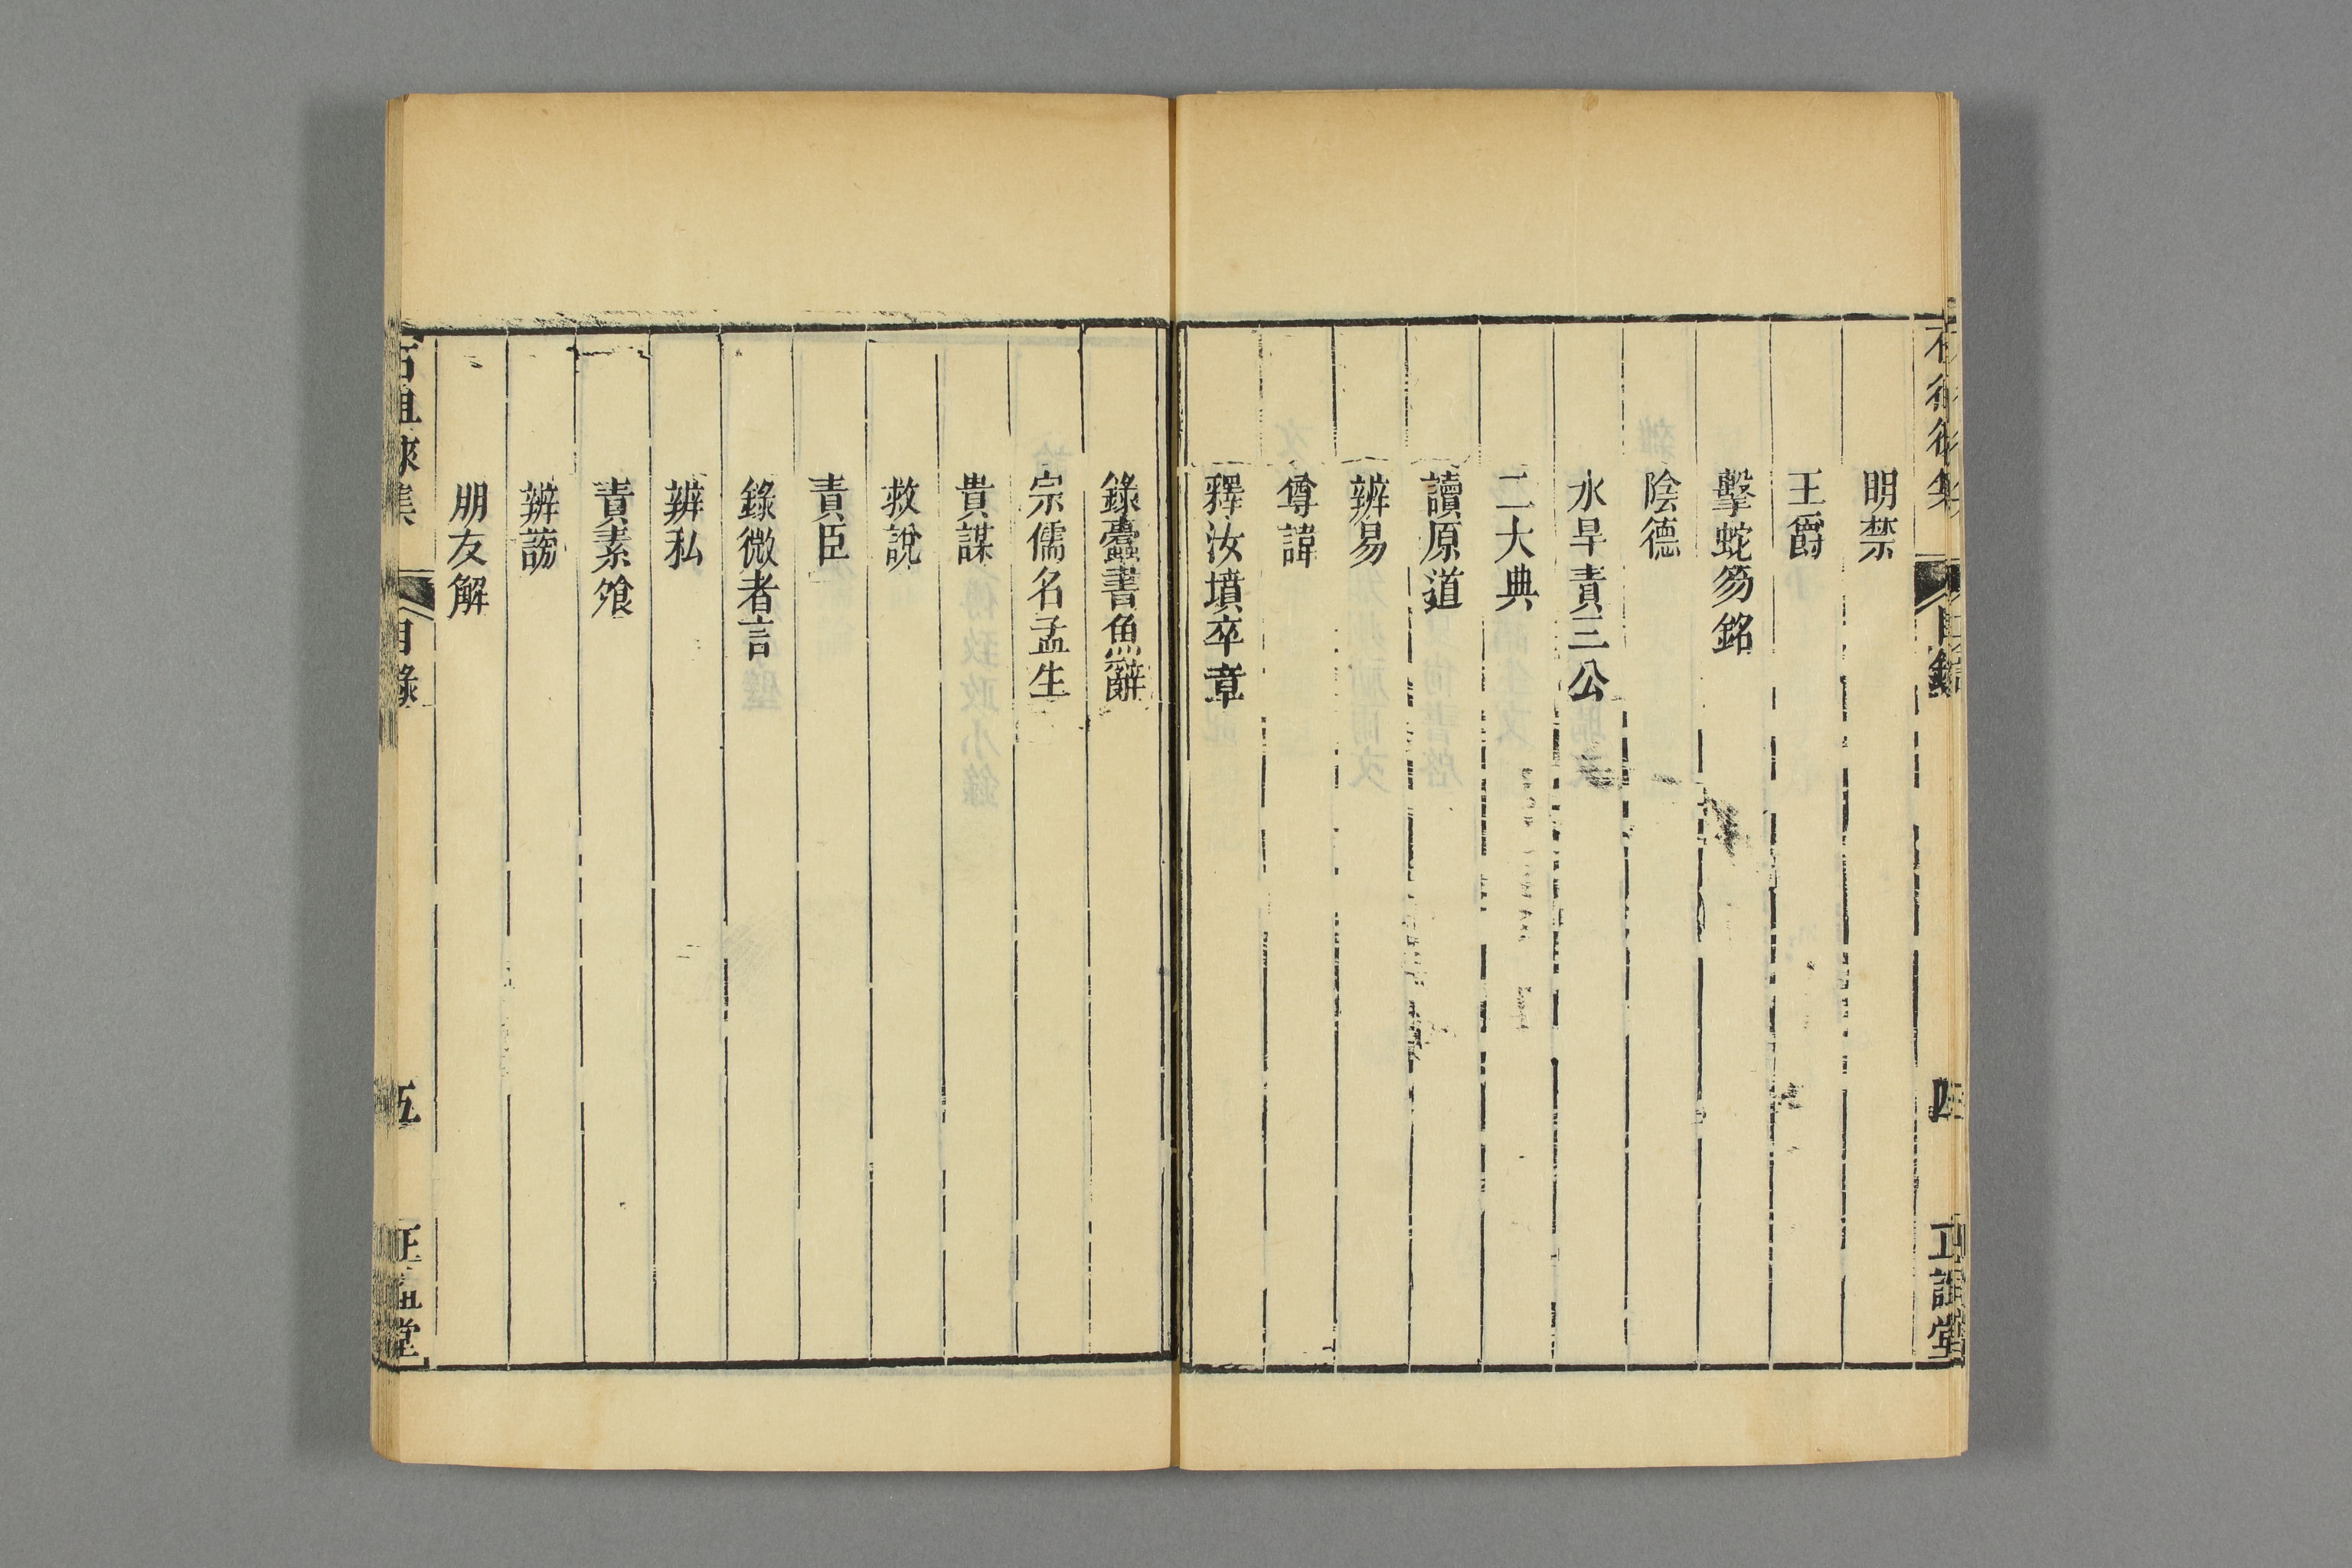 明禁
王爵
擊蛇笏銘
陰德
水旱責三公
二大典
讀原道
辨易
尊諱
釋汝墳卒章
錄蠹書魚辭
宗儒名孟生
貴謀
救說
責臣
錄微者言
辨私
責素飧
辨謗
朋友解
目錄
五
堂